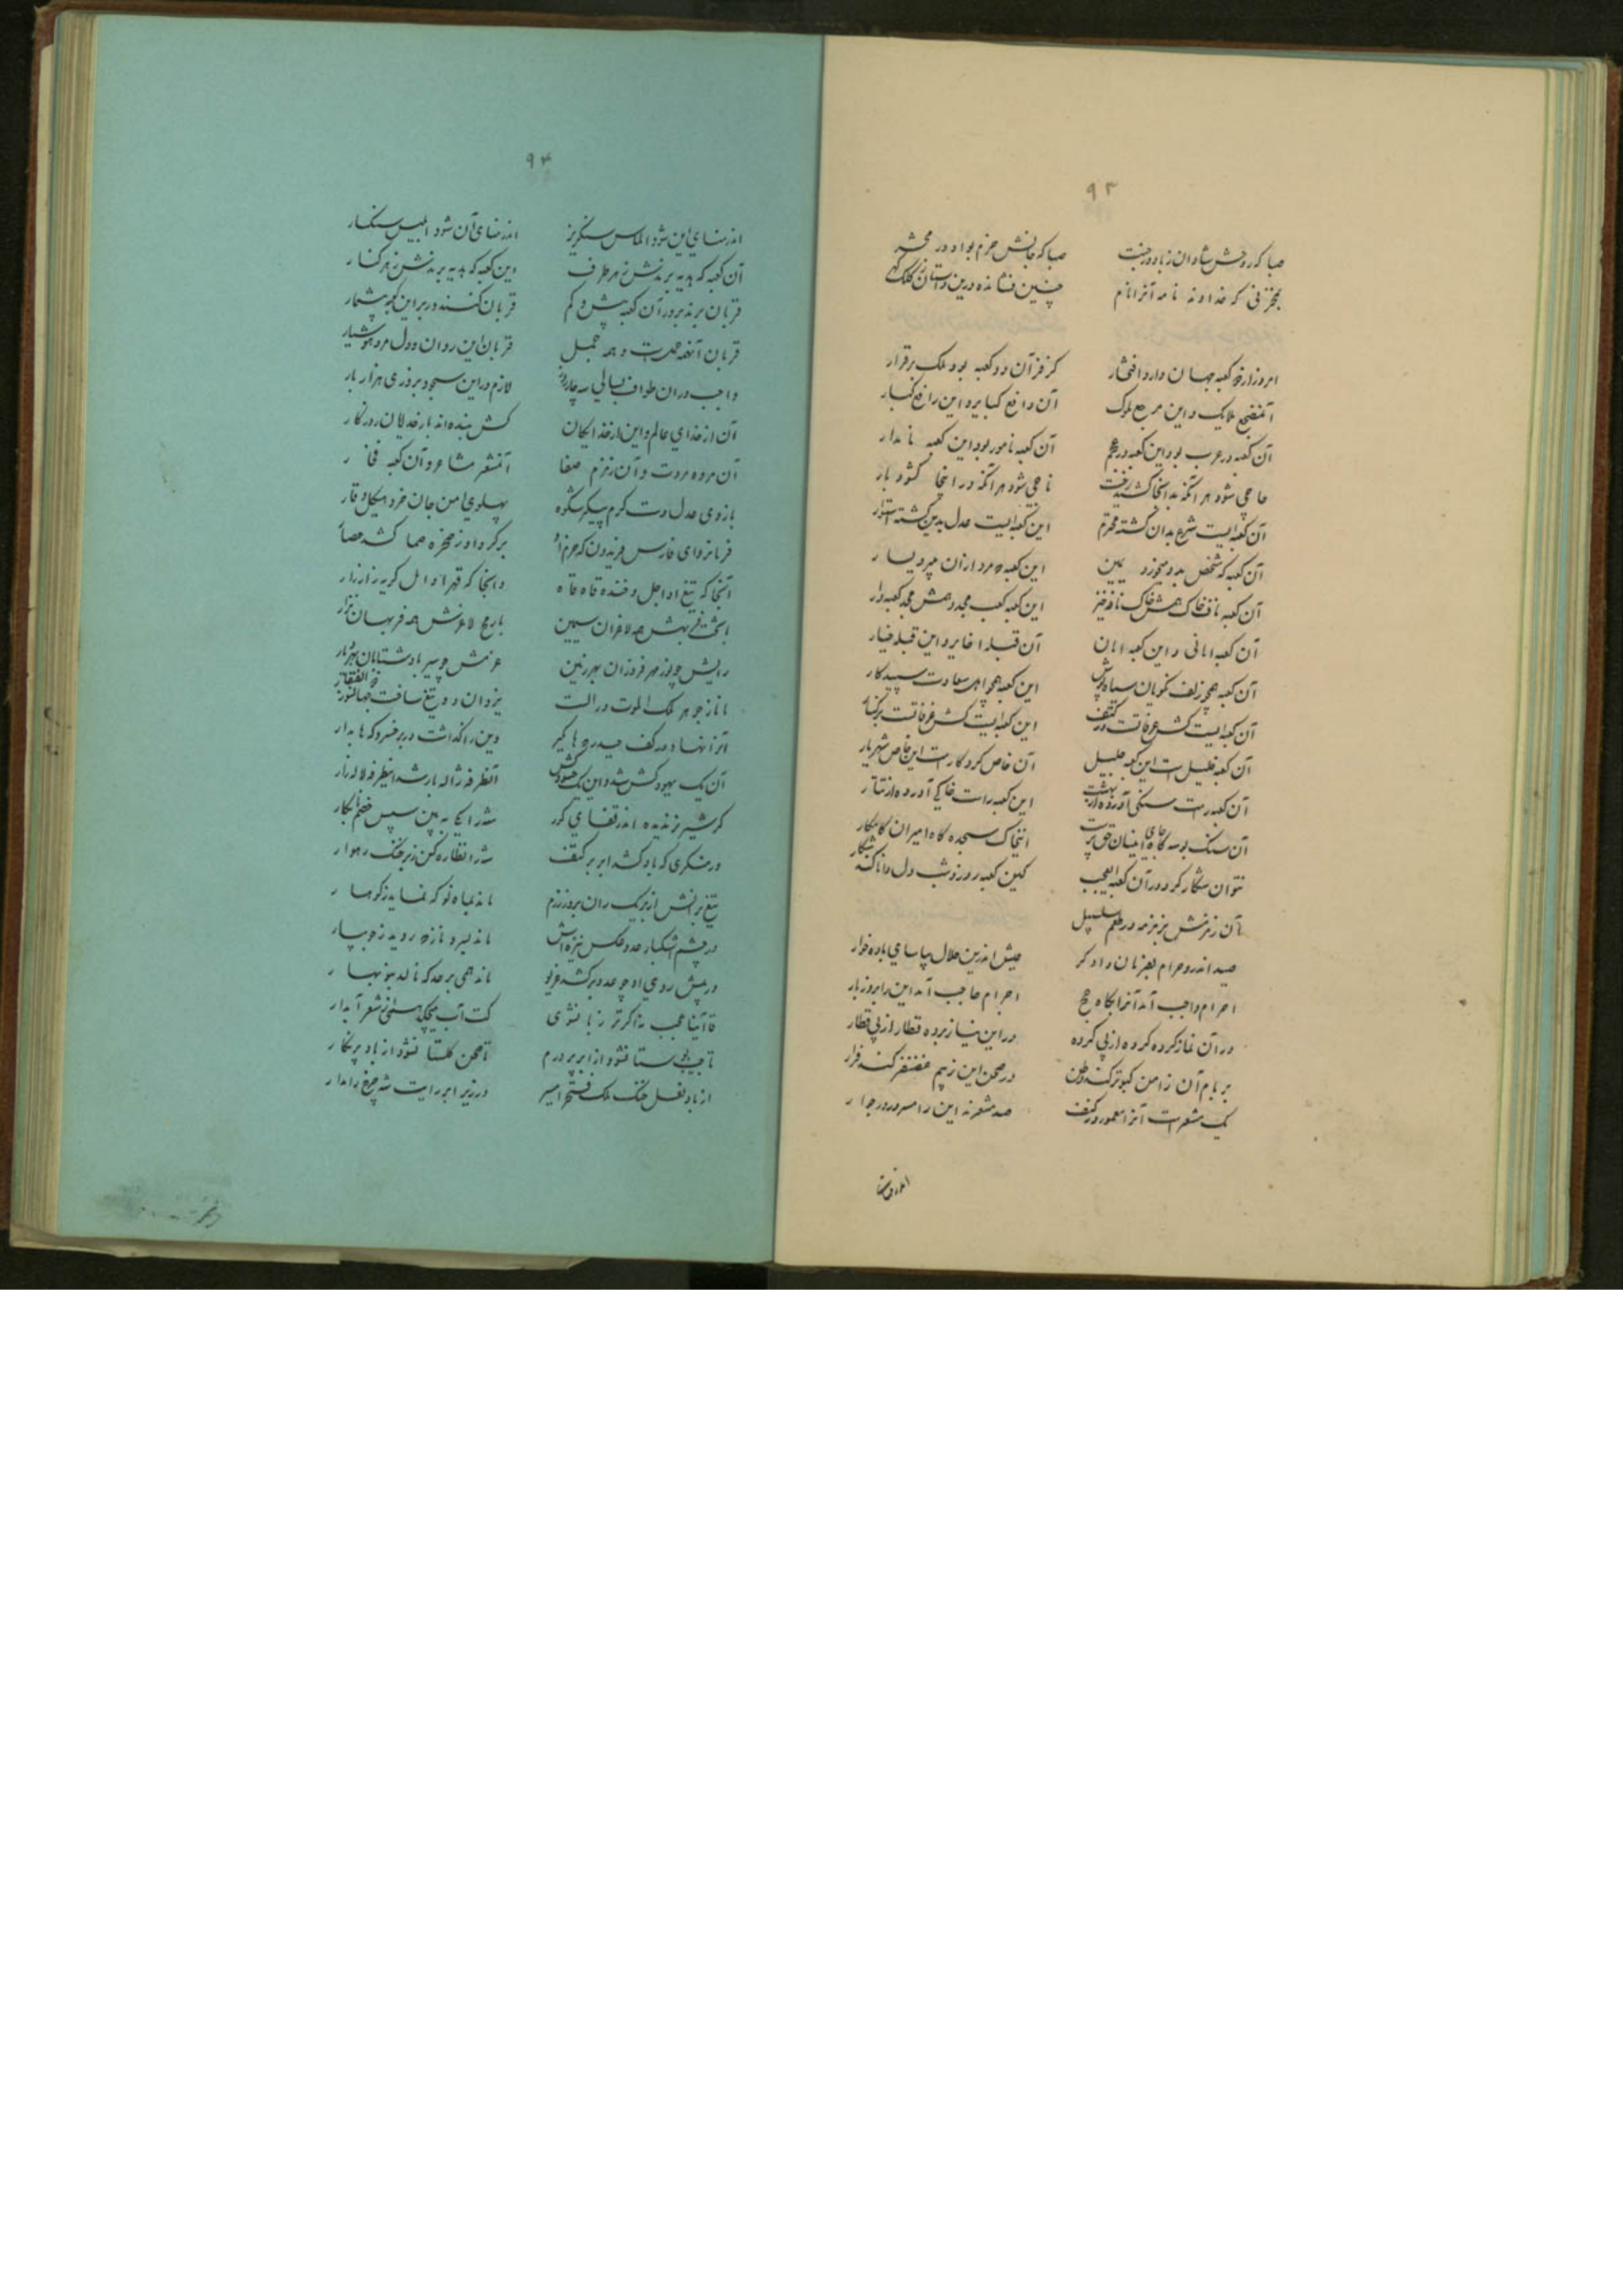 ۹۳
صبا که روحش شادان زیاد در جنت صبا که جانش خرم بواد در محشر
بمخزنی که خداوند نامه آنرا نام چنین فشانده درین داستان ز کلک گهر
امروز از دو کعبه جهان دارد افتخار کز فر آن دو کعبه بود ملک برقرار
آن ملایک و این مرجع ملوک آن دافع کبایر و این رافع کبار
آن کعبه در عرب بود این کعبه در عجم آن کعبه نامور بود این کعبه نامدار
حاجی شود هر آنکه بدانجا کشید رخت ناجی شود هر آنکه در اینجا گشود بار
آن کعبه ایست شرع بدان گشته محترم این کعبه ایست عدل بدین گشته استوار
آن کعبه که شخص بدو میخورد یمین این کعبه مرد از آن میبرد یسار
آن کعبه ناف خاک همش خاک نافه خیز این کعبه کعب مجد و همش مجد کعبه دار
آن کعبه امانی و این کعبه امان آن قبله اخایر و این قبله خیار
آن کعبه همچو زلف نکویان سیاه پوش این کعبه همچو اهل سعادت سپیدکار
آن کعبه ایست کش عرفاتست در کنف این کعبه ایست کش غرفاتست بر کنار
آن کعبه خلیل است این کعبه جلیل آن خاص کردگار است این خاص شهریار
آن کعبه راست سنگی آورده از بهشت این کعبه راست خاکی آورده از تتار
آن سنگ بوسه گاه حق پرست این خاک سجده گاه امیران کامکار
نتوان شکار کرد در آن کعبه ای عجب کین کعبه روز و شب دل دانا کند شکار
آن زمزمش بزمزمه در طعم سلسبیل
صید اندر و حرام بفرمان دادگر عیش اندرین حلال بپاسای باده خوار
احرام واجب آمد آنرا بگاه حج احرام حاجب آمد این را بروز بار
در آن نماز کرده گروه از پی گروه در این نیاز برده قطار از پی قطار
بر بام آن ز امن کبوتر کند وطن در صحن این ز بیم غضنفر کند فرار
یک مشعر است آنرا معمور در کنف صد مشعر نه این را مسرور در جوار
۹۴
اندر منای این شود الماس سنگریز اندر منای آن شود ابلیس سنگسار
آن کعبه که هدیه برندش ز هر طرف این کعبه که بدیه برندش ز هر کنار
قربان برند بر در آن کعبه بیش و کم قربان کنند در بر این کعبه بیشمار
قربان آنهمه و همه جمل قربان این روان و دل مرد هوشیار
واجب در آن طواف بسالی سه چار روز لازم در این سجود بروزی هزار بار
آن از خدای عالم و این از خدایگان کش بنده اند بارخدایان روزگار
آن مروه مروت و آن زمزم صفا آن مشعر مشاعر و آن کعبه فخار
بازوی عدل دست کرم پیکر شکوه پهلوی امن جان خرد هیکل وقار
فرمانروای فارس فریدون که حزم او برگرد از صخره صما کشد حصار
آنجا که تیغ او اجل و خنده قاه قاه وانجا که قهر او امل گریه زار زار
لاغران سمین با رمح لاغرش همه فربهان نزار
رایش چو نور مهر فروزان بهر زمین عزمش چو سیر باد شتابان بهر دیار
مانا ز جوهر ملک الموت در الست یزدان دو تیغ ساخت جهانسوز ذوالفقار
آنرا نهاد در کف حیدر وین را گذاشت در بر خسرو که ها بدار
آن یک یهود کش شد و این یک حسود کش آنطرفه ژاله بار شد اینطرفه لاله زار
گر شیر نر ندیده اندر قفای گور شه را بیا ببین سپس خصم نابکار
ور منکری که باد کشد ابر بر کتف شه را نظاره کن زبر خنگ راهوار
تیغ برانش از بر یکران بروز رزم ماند بماه نو که نماید ز کوهسار
در چشم اشکبار عدو عکس نیزه اش ماند بسرو نازه روید ز جویبار
در پیش روی او چو عدو برکشد غریو ماند همی برعد که نالد بنوبهار
قاآنیا عجب نه اگر تر زبان شوی کت آب میچکد همی از شعر آبدار
تا صحن گلستان شود از باد پر نگار
از باد نعل خنگ ملک در زیر ابر رایت شه چرخ را مدار